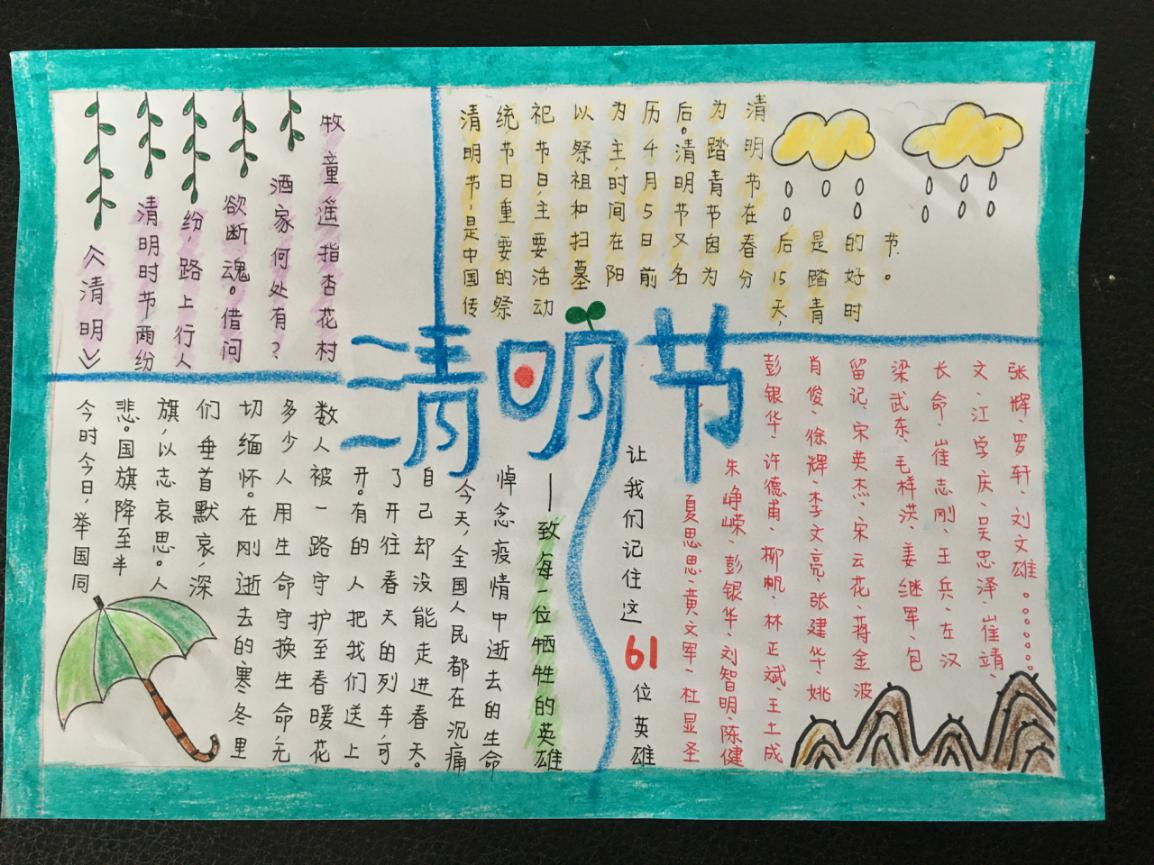 《清明》
清明时节雨纷
纷,路上行人
欲断魂。借问
酒家何处有?
牧童遥指杏花村
清明节,是中国传
统节日重要的祭
祀节日,主要活动
以祭祖和扫墓
为主,时间在阳
历4月5日前
后。清明节又名
为踏青节因为
清明节在春分
后15天,
是踏青
的好时
节。
清明节
今时今日,举国同
悲。国旗降至半
旗,以志哀思。人
们垂首默哀,深
切缅怀。在刚逝去的寒冬里
多少人用生命守换生命,无
数人被一路守护至春暖花
开。有的人把我们送上
了开往春天的列车,可
自己却没能走进春天。
今天,全国人民都在沉痛
悼念疫情中逝去的生命
——致每一位牺牲的英雄
让我们记住这61位英雄
夏思思、黄文军、杜显圣
朱峥嵘、彭银华、刘智明、陈健
彭银华、许德甫、柳帆、林正斌、王土成
肖俊、徐辉、李文亮、张建华、姚
留记、宋英杰、宋云花、蒋金波
梁武东、毛样洪、姜继军、包
长命、崔志刚、王兵、左汉
文、江学庆、吴忠泽、崔靖、
张辉、罗轩、刘文雄。。。。。。。